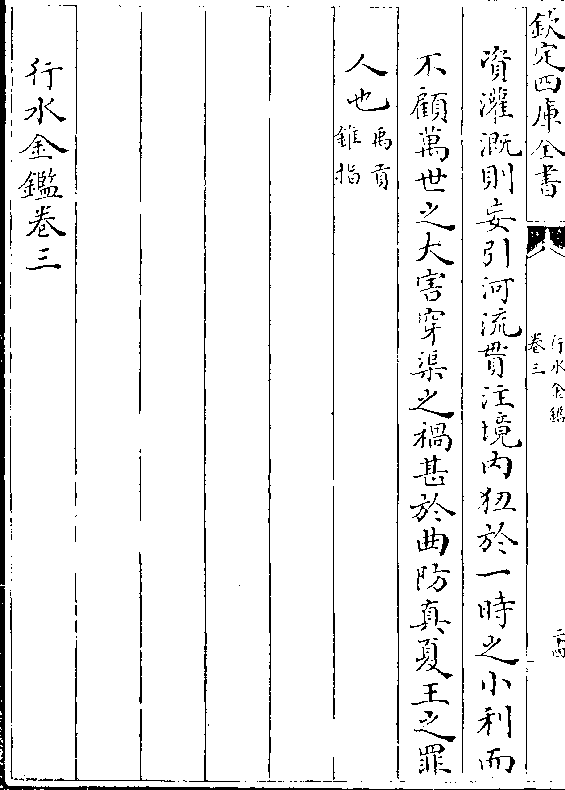 欽定四庫全書
行水金鑑
卷三
二十四
資灌溉則妄引河流貫注境内狃於一時之小利而
不顧萬世之大害穿渠之禍甚於曲防真夏王之罪
人也禹貢
錐指
行水金鑑卷三